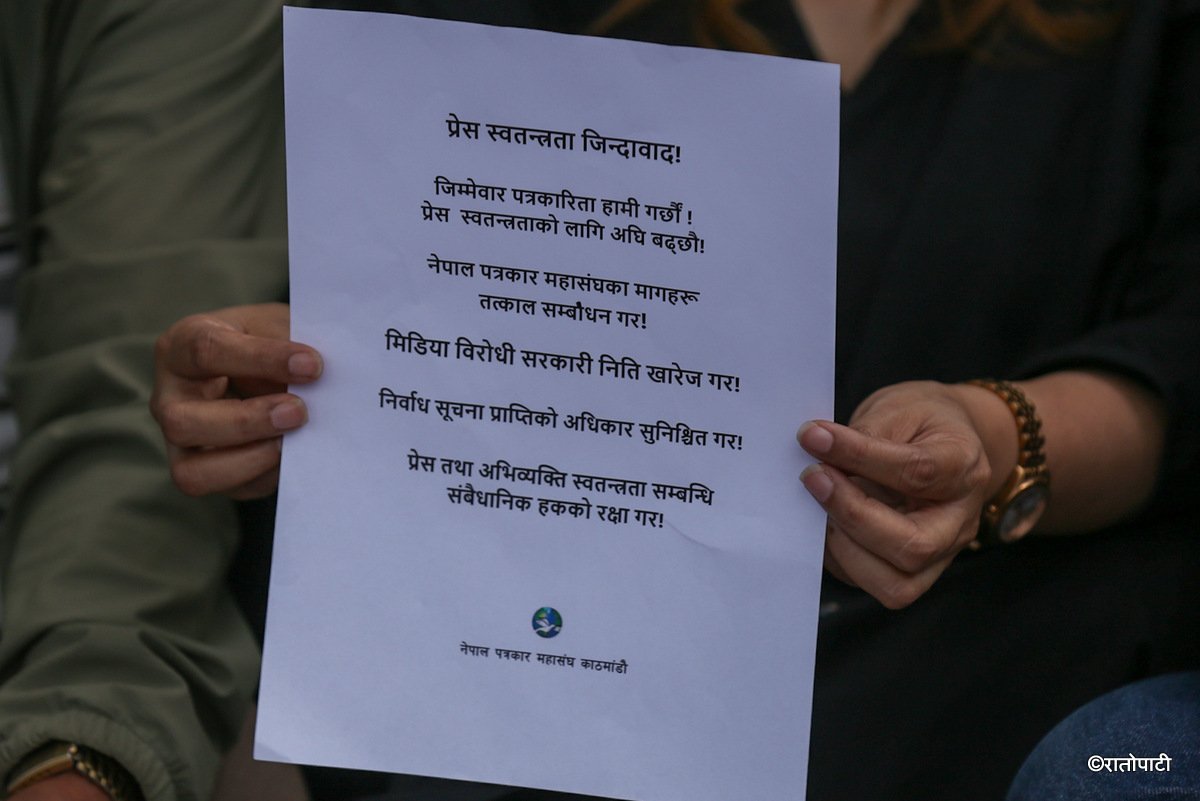 प्रेस स्वतन्त्रता जिन्दावाद!
जिम्मेवार पत्रकारिता हामी गर्छौं !
प्रेस स्वतन्त्रताको लागि अघि बढ्छौ!
नेपाल पत्रकार महासंघका मागहरू
तत्काल सम्बोधन गर!
मिडिया विरोधी सरकारी निति खारेज गर!
निर्वाध सूचना प्राप्तिको अधिकार सुनिश्चित गर!
प्रेस तथा अभिव्यक्ति स्वतन्त्रता सम्बन्धि
संबैधानिक हकको रक्षा गर!
नेपाल पत्रकार महासंघ काठमांडौ
©रातोपाटी